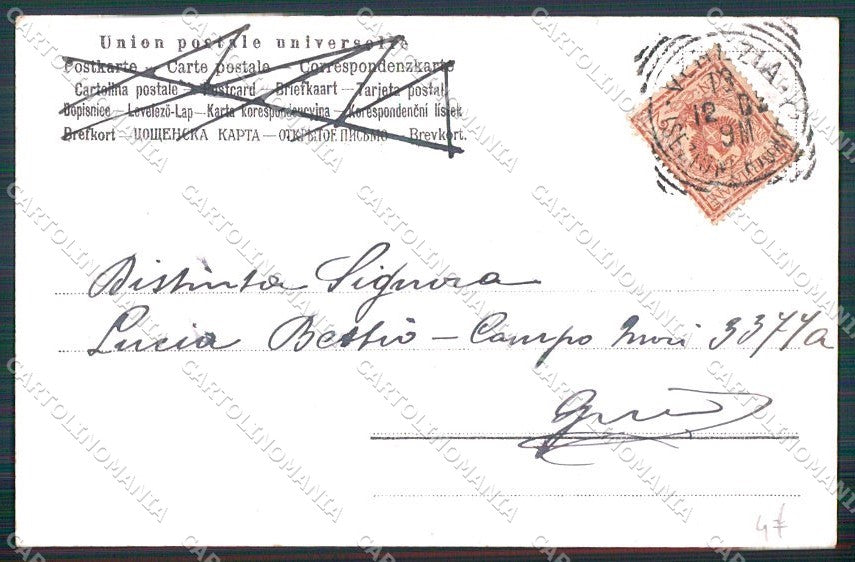 Union postale universelle
Postkarte — Carte postale — Correspondenzkarte
Cartolina postale — Postcard — Briefkaart — Tarjeta postal
Dopisnice — Levelező-Lap — Karta korespondencyjna — Korespondenční lístek
Brefkort — ЦОЩЕНСКА КАРТА — ОТКРЫТОЕ ПИСЬМО — Brevkort.
VENEZIA
13
12 03
9M
Distinta Signora
Lucia — Campo Mori 3377a
47
CARTOLINOMANIA